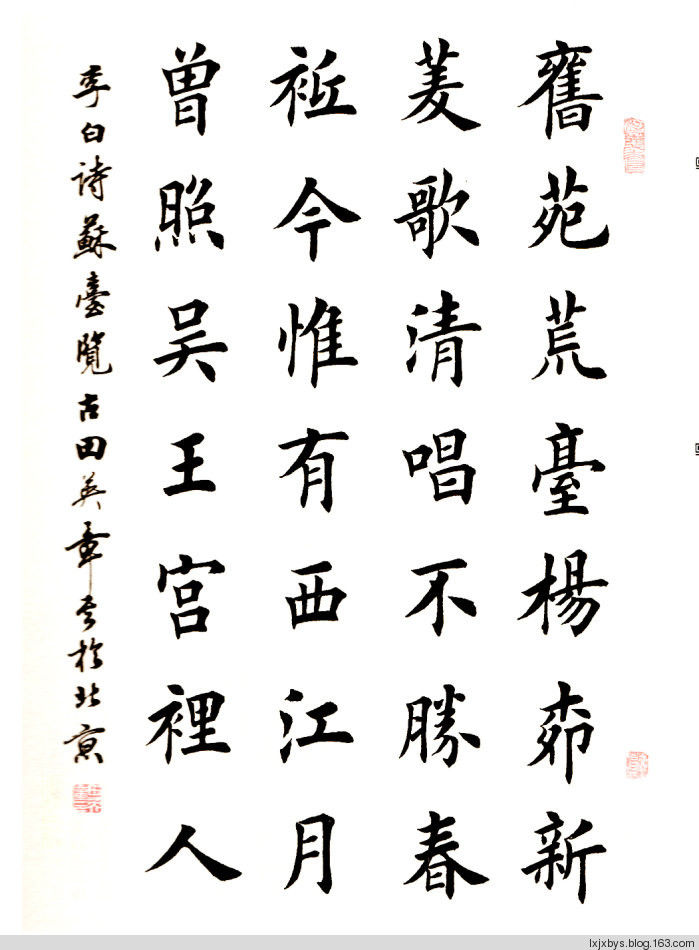 舊苑荒臺楊柳新
菱歌清唱不勝春
祗今惟有西江月
曾照吴王宫裡人
李白詩蘇臺覽古田英章書於北京
lxjxbys.blog.163.com